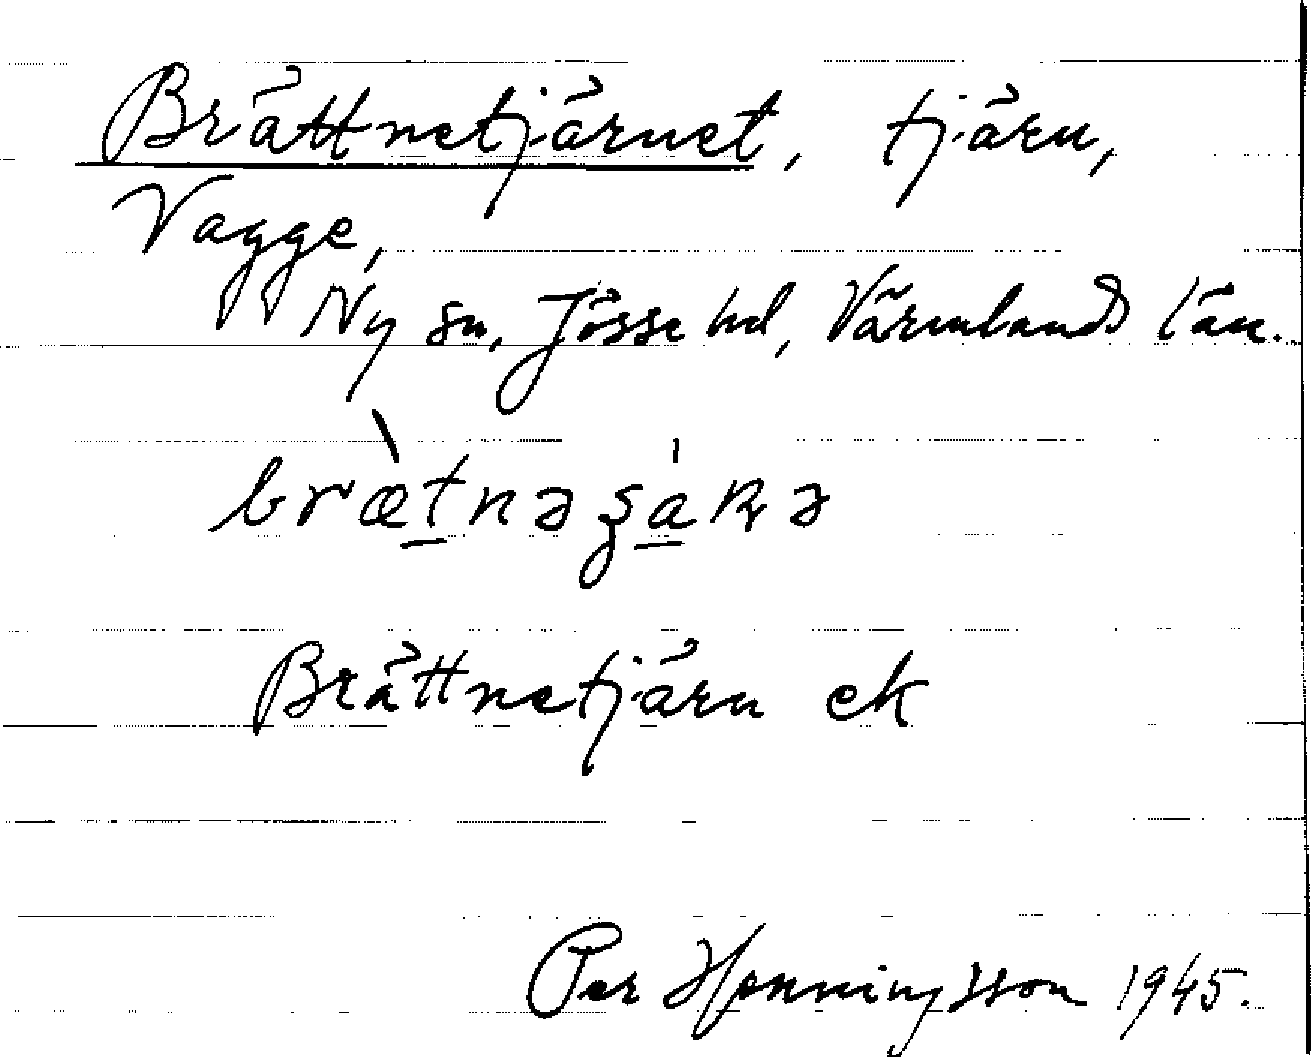 Brättnetjärnet, tjärn,
Vagge,
Ny sn, Jösse hd, Värmlands län.
Brättnetjärn ek
Per Henningsson 1945.